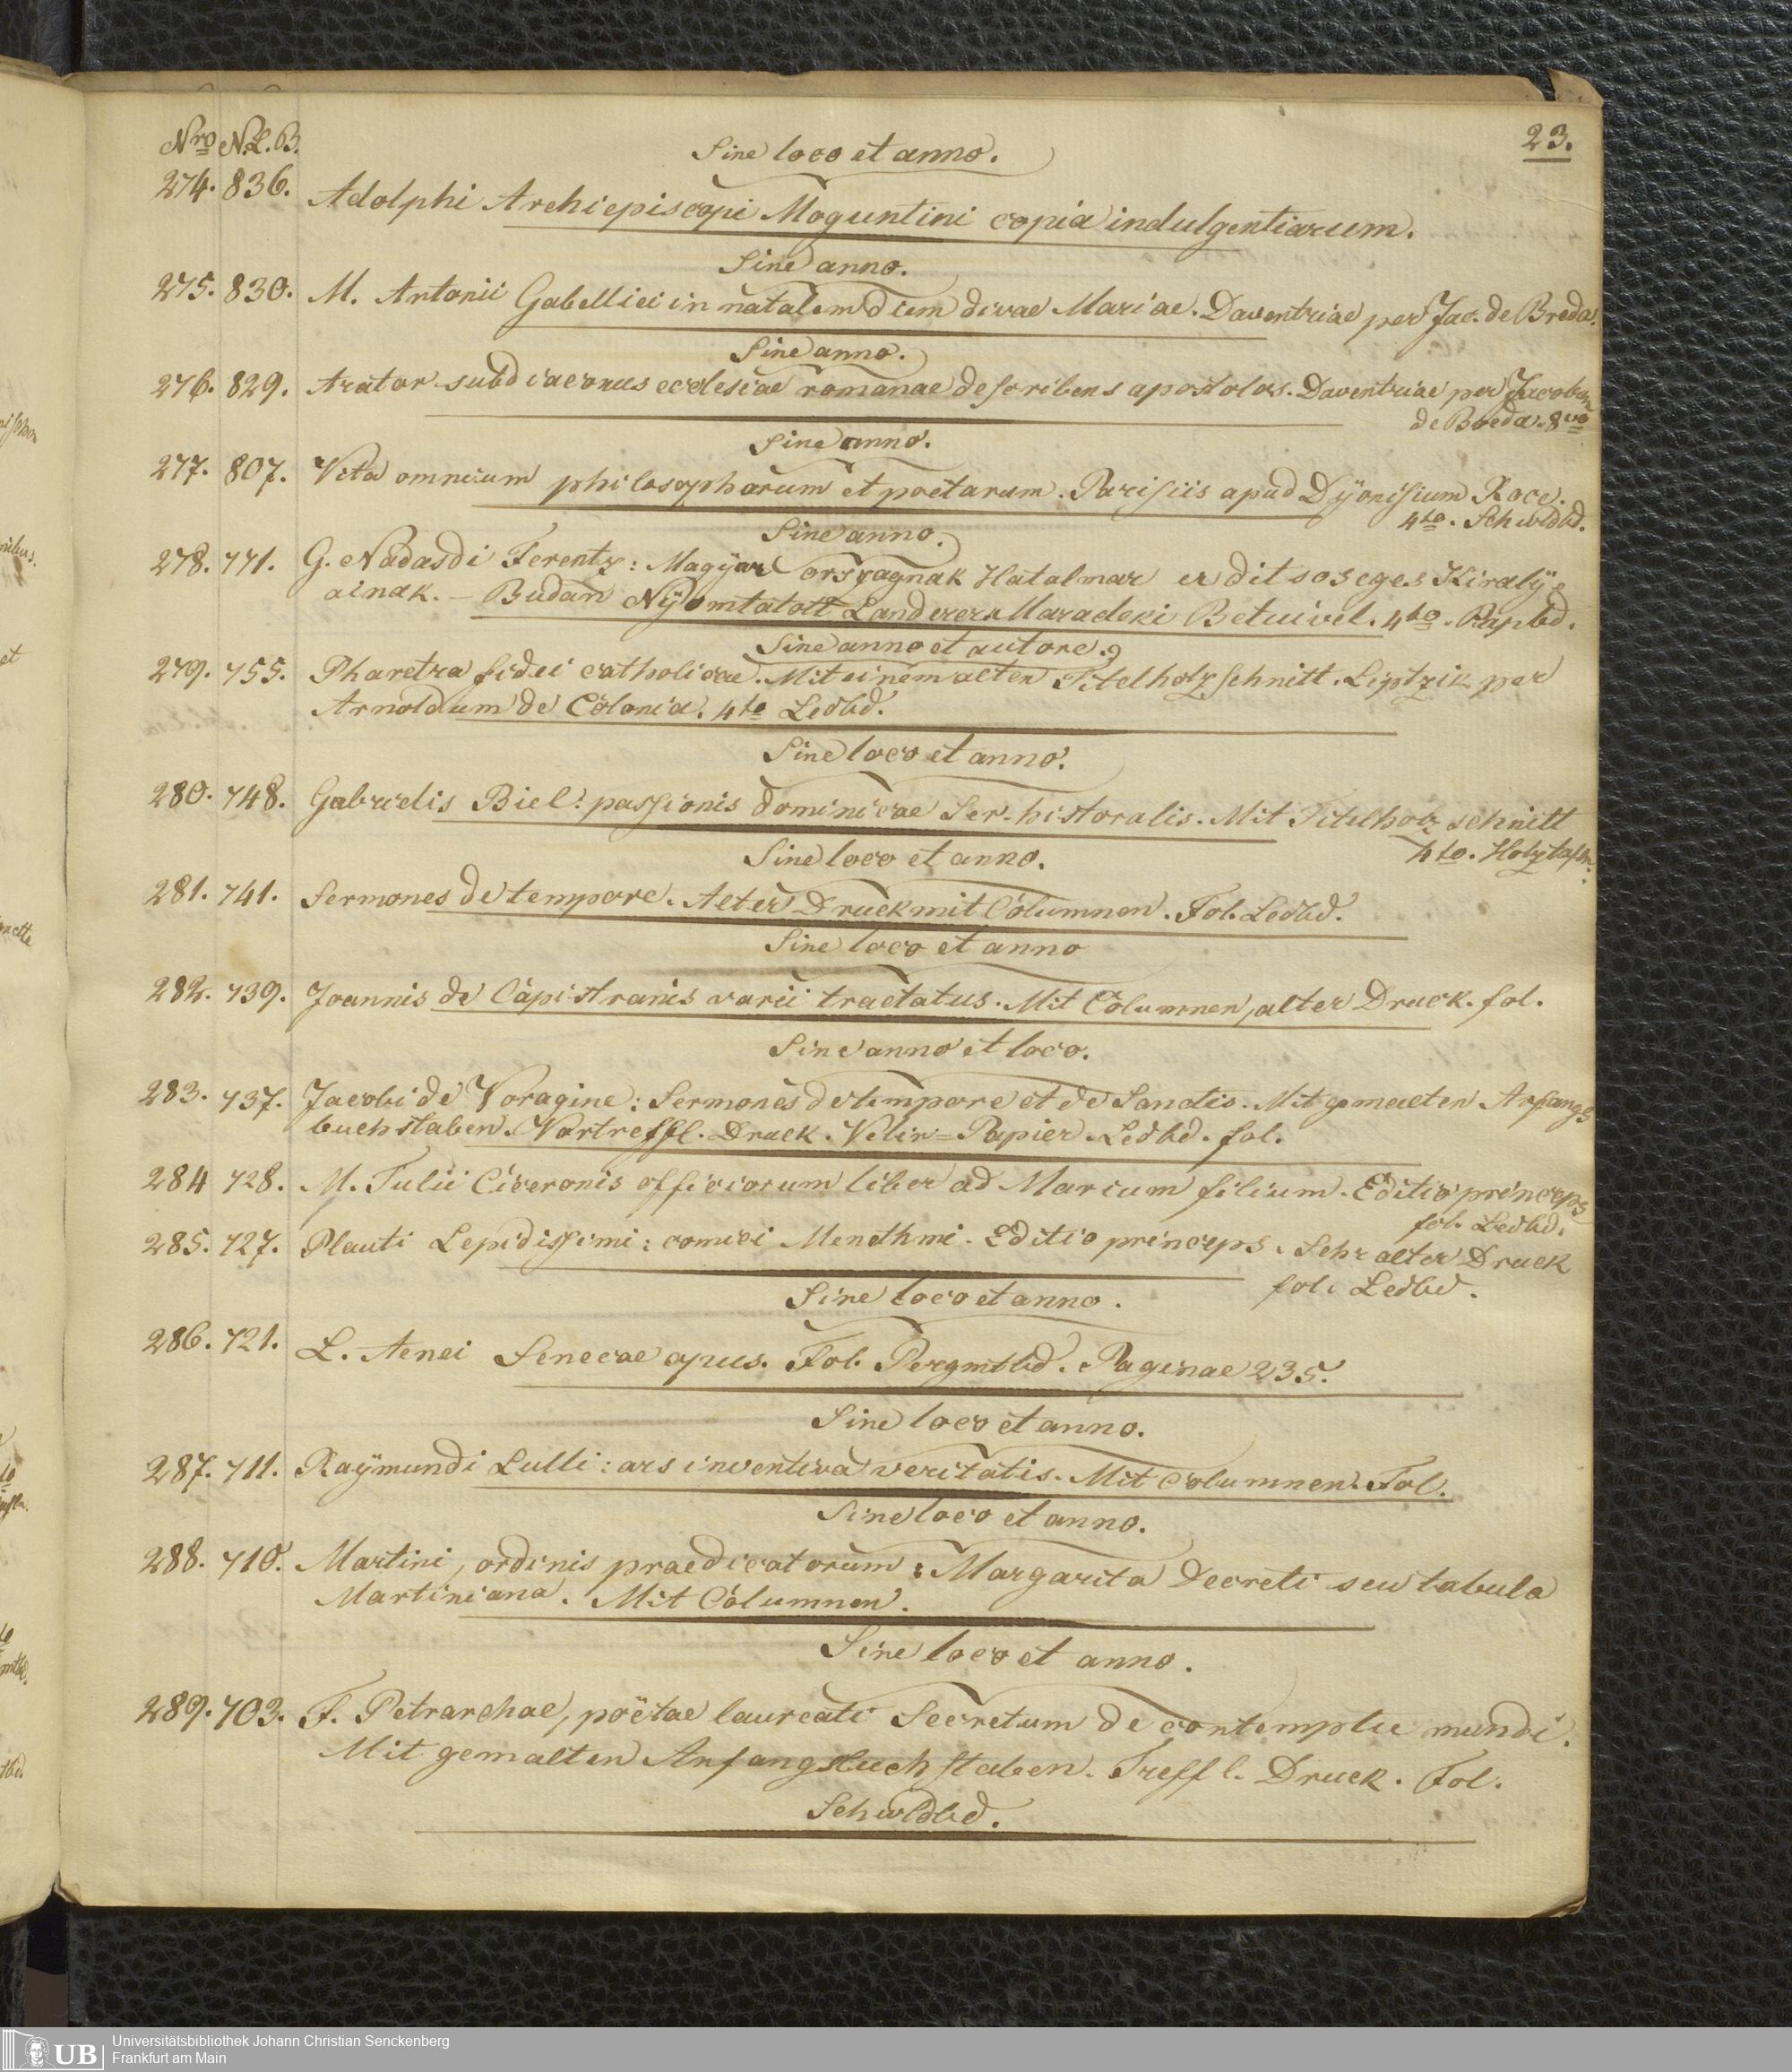 23.
Nro N.L.B.
Sine loco et anno.
274. 836. Adolphi Archiepiscopi Moguntini copia indulgentiarum.
Sine anno.
275. 830. M. Antonii Gabelliei in natalem diem divae Mariae. Daventriae per Jac. de Breda.
Sine anno.
276. 829. Arator subdiaconus ecclesiae romanae describens apostolos. Daventriae per Jacobum
de Breda. 8vo
Sine anno.
277. 807. Vita omnium philosopharum et poëtarum. Parisiis apud Dÿonisium Roce.
4to. Schwldbd.
Sine anno.
278. 771. G. Nadasdi Ferentz: Magÿar orszagnak Hatalmar er ditsoseges Kiralÿ
ainak. – Budan Nÿomtatott Landerer Maradeki Betuivel. 4to. Papbd.
Sine anno et autore.
279. 755. Pharetra fidei catholicae. Mit einem alten Titelholzschnitt. Liptzik per
Arnoldum de Colonia. 4to Ledbd.
Sine loco et anno.
280. 748. Gabrielis Biel: passionis dominicae Ser. historalis. Mit Titelholz schnitt
4to. Holztafln.
Sine loco et anno.
281. 741. Sermones de tempore. Alter Druck mit Columnen. Fol. Ledbd.
Sine loco et anno
282. 739. Joannis de Capistranis varii tractatus. Mit Columnen, alter Druck. fol.
Sine anno et loco.
283. 737. Jacobi de Voragine: Sermones de tempore et de Sanctis. Mit gemalten Anfangs
buchstaben. Vortreffl. Druck. Velin-Papier. Ledbd. fol.
284 728. M. Tulii Ciceronis officiorum liber ad Marcum filium. Editio princeps
fol. Ledbd.
285. 727. Plauti Lepidissimi: comici Menethmi. Editio princeps. Sehr alter Druck
fol. Ledbd.
Sine loco et anno.
286. 721. L. Aenei Senecae opus. Fol. Pergmtbd. Paginae 235.
Sine loco et anno.
287. 711. Raÿmundi Lulli: ars inventiva veritatis. Mit Columnen. Fol.
Sine loco et anno.
288. 710. Martini, ordinis praedicatorum: Margarita Decreti seu tabula
Martiniana. Mit Columnen.
Sine loco et anno.
289. 703. F. Petrarchae, poëtae laureati Secretum de contemptu mundi.
Mit gemalten Anfangsbuchstaben. Treffl. Druck. Fol.
Schwldbd.
UB
Universitätsbibliothek Johann Christian Senckenberg
Frankfurt am Main